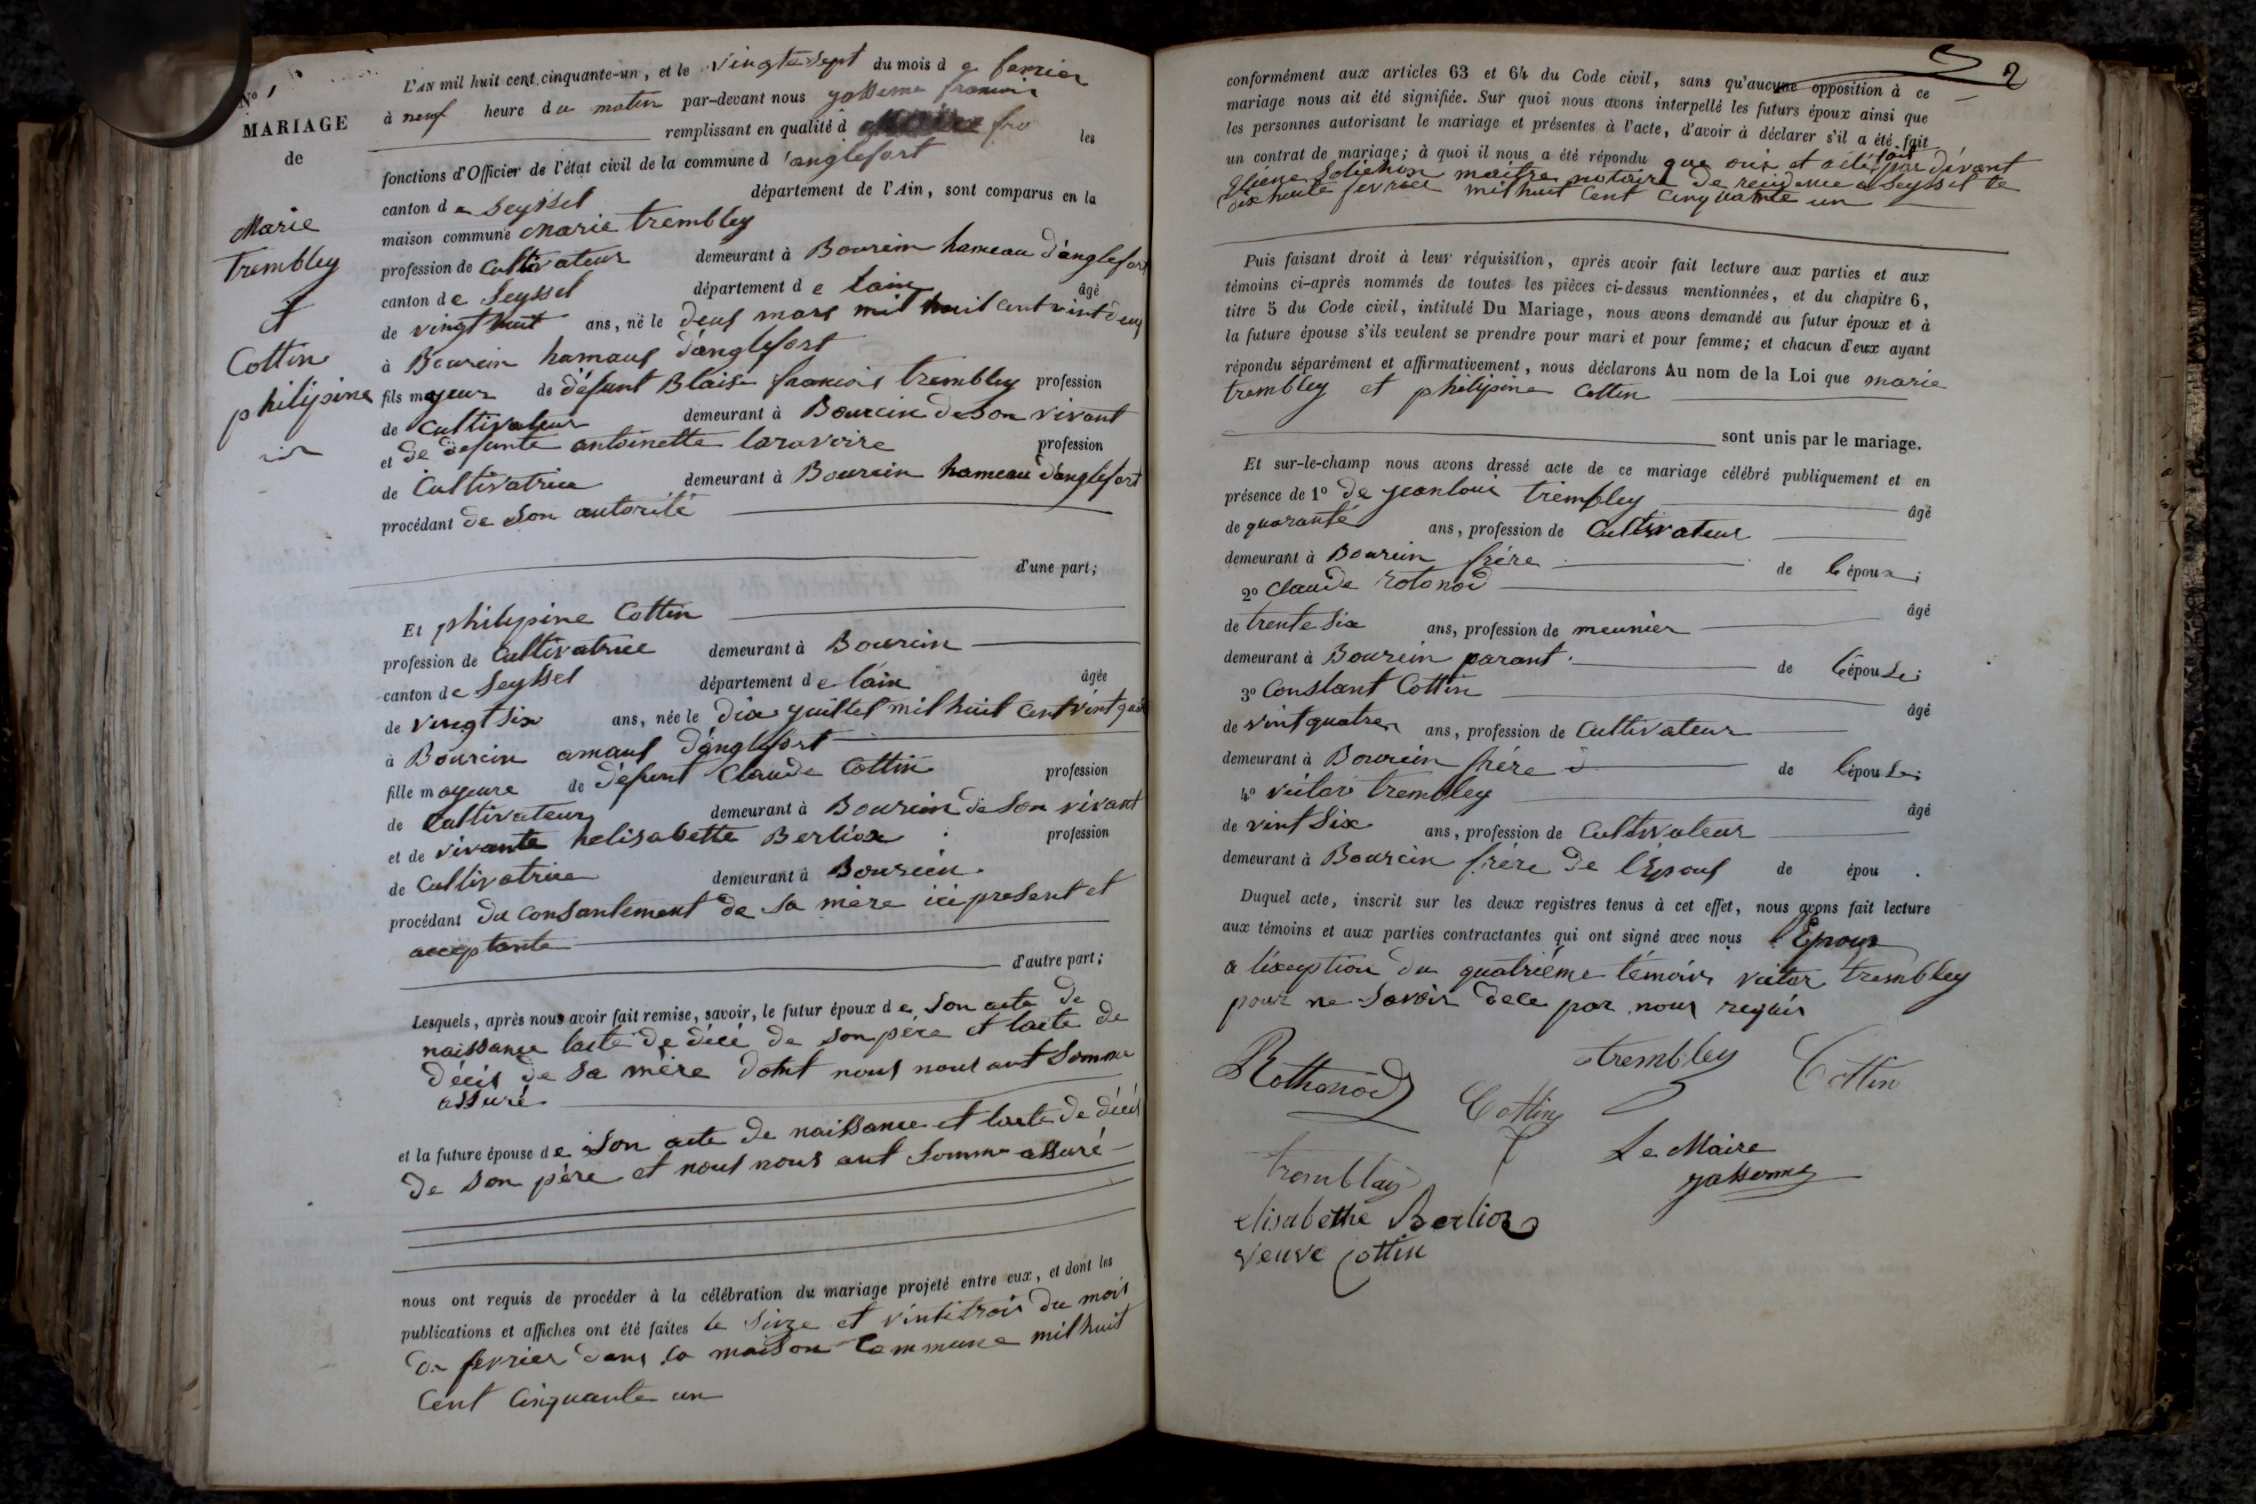 N° 1
MARIAGE
de
Marie
trembley
et
Cottin
philipine
L'AN mil huit cent cinquante-un, et le vingtesept du mois de fevrier
à neuf heure du matin par-devant nous francois
remplissant en qualité d les
fonctions d'Officier de l'état civil de la commune d'anglefort
canton de Seyssel département de l'Ain, sont comparus en la
maison commune Marie trembley
profession de Cultivateur demeurant à Bourcin hameau d'anglefort
canton de Seyssel département de lain âgé
de vingt huit ans, né le deus mars mil huit cent vint deux
à Bourcin hamaus d'anglefort
fils mageur de défunt Blaise francois trembley profession
de Cultivateur demeurant à Bourcin de son vivant
et de defunte antoinette laravoire profession
de Cultivatrice demeurant à Bourcin hameau d'anglefort
procédant de son autorité
d'une part;
Et philipine Cottin
profession de Cultivatrice demeurant à Bourcin
canton de Seyssel département de lain âgée
de vingt six ans, née le dix juillet mil huit cent vint
à Bourcin amaus d'anglefort
fille mageure de défunt Claude Cottin profession
de Cultivateur demeurant à Bourcin de son vivant
et de vivante helisabette Berliox profession
de Cultivatrice demeurant à Bourcin.
procédant du consantement de sa mère ici present et
acceptante
d'autre part;
Lesquels, après nous avoir fait remise, savoir, le futur époux de son acte de
naissance lacte de décé de son père et lacte de
décis de sa mère dont nous nous ant somme
assuré
et la future épouse de son acte de naissance et lacte de décés
de son père et nous nous ant somme assuré
nous ont requis de procéder à la célébration du mariage projeté entre eux, et dont les
publications et affiches ont été faites le seize et vintitrois du mois
de fevrier dans la maison Commune mil huit
Cent Cinquante un
2
conformément aux articles 63 et 64 du Code civil, sans qu'aucune opposition à ce
mariage nous ait été signifiée. Sur quoi nous avons interpellé les futurs époux ainsi que
les personnes autorisant le mariage et présentes à l'acte, d'avoir à déclarer s'il a été fait
un contrat de mariage; à quoi il nous a été répondu que oui et a été fait par dévant
maitre notaire de residence a Seyssel le
dix huite fevrier mil huit Cent Cinquante un
Puis faisant droit à leur réquisition, après avoir fait lecture aux parties et aux
témoins ci-après nommés de toutes les pièces ci-dessus mentionnées, et du chapitre 6,
titre 5 du Code civil, intitulé Du Mariage, nous avons demandé au futur époux et à
la future épouse s'ils veulent se prendre pour mari et pour femme; et chacun d'eux ayant
répondu séparément et affirmativement, nous déclarons Au nom de la Loi que marie
trembley et philipine Cottin
sont unis par le mariage.
Et sur-le-champ nous avons dressé acte de ce mariage célébré publiquement et en
présence de 1° de jeanlouis trembley âgé
de quaranté ans, profession de Cultivateur
demeurant à Bourcin frére de l'époux;
2° Claude rotonod âgé
de trente six ans, profession de meunier
demeurant à Bourcin parant de l'épouse;
3° Constant Cottin âgé
de vint quatre ans, profession de Cultivateur
demeurant à Bourcin frére de l'épouse;
4° victor trembley âgé
de vint six ans, profession de Cultivateur
demeurant à Bourcin frére de l'Epous de épou .
Duquel acte, inscrit sur les deux registres tenus à cet effet, nous avons fait lecture
aux témoins et aux parties contractantes qui ont signé avec nous l'Epoux
a l'exeption du quatriéme témoin victor trembley
pour ne savoir dece par nous requis
Rothonod trembley Cottin
Cottin
tremblay Le Maire
elisabethe Berlioz
veuve Cottin